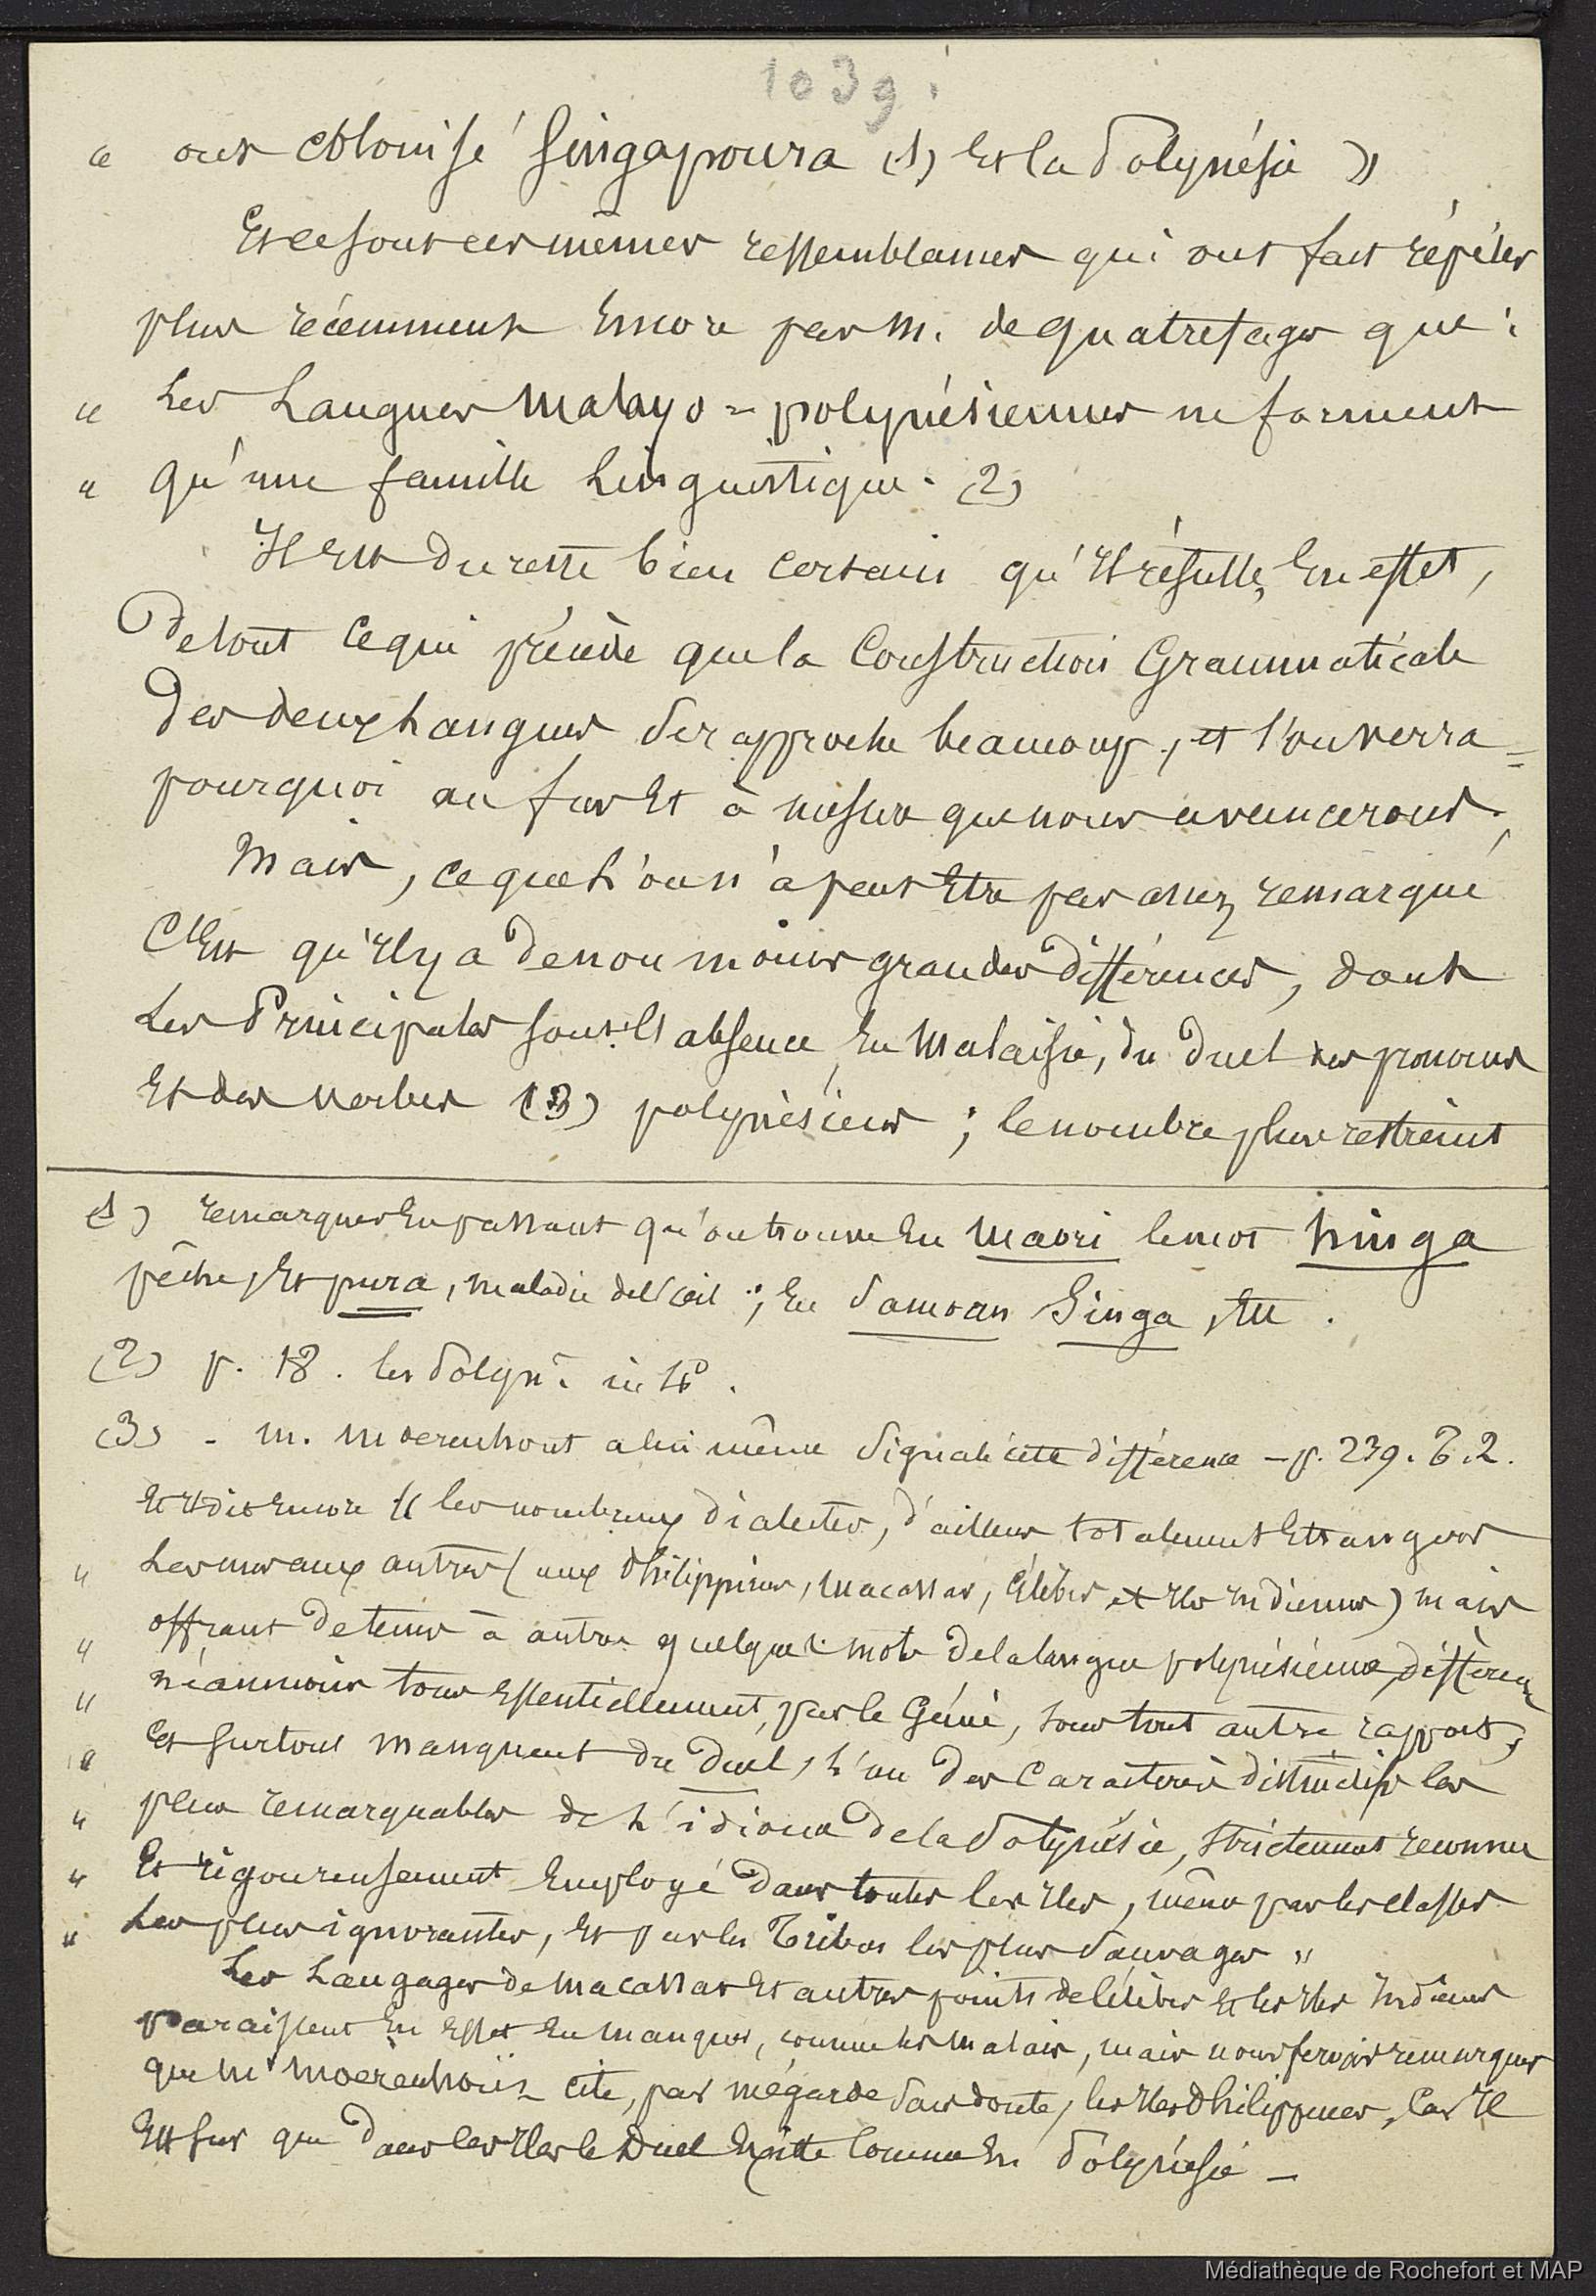 1039.
« ont colonisé Singapoura (1) et la Polynésie »
Et ce sont ces mêmes ressemblances qui ont fait répéter
plus récemment encore par M. de Quatrefages que :
« les Langues Malayo = polynésiennes ne forment
« qu'une famille Linguistique. (2)
Il est du reste bien certain qu'il résulte, en effet,
De tout ce qui précède que la Construction Grammaticale
Des deux Langues se rapproche beaucoup, et l'on verra =
pourquoi au fur et à mesure que nous avancerons.
Mais, ce que l'on n'a peut être pas assez remarqué
C'est qu'il y a de non moins grandes différences, dont
Les Principales sont : l'absence, en Malaisie, du duel des pronoms
Et des verbes (3) polynésiens ; le nombre plus restreint
(1) remarquer en passant qu'on trouve en Maori le mot hinga
pêche, et pura, maladie de l'œil ; en Samoan Singa, etc.
(2) p. 18. les Polyn. in 4°.
(3) - M. Moerenhout a lui même signalé cette différence - p. 239. T. 2.
Et il dit encore « les nombreux dialectes, d'ailleurs totalement étrangers
« Les uns aux autres (aux Philippines, Macassar, Célèbes et Iles Indiennes) mais
« offrant de temps à autre quelques mots de la langue polynésienne, diffèrent
« néanmoins tous essentiellement, par le Génie, sous tout autre rapport,
« et surtout manquent du duel, l'un des caractères distinctifs les
« plus remarquables de l'idiome de la Polynésie, strictement reconnu
« Et rigoureusement employé dans toutes les Iles, même par les classes
« Les plus ignorantes, et par les Tribus les plus sauvages »
Les Langages de Macassar et autres points de Célèbes et les Iles Indiennes
Paraissent en effet en manquer, comme les Malais, mais nous ferons remarquer
que Mr Moerenhout cite, par mégarde sans doute, les Iles Philippines, Car il
Est sûr que dans les Iles le Duel existe comme en Polynésie -
Médiathèque de Rochefort et MAP